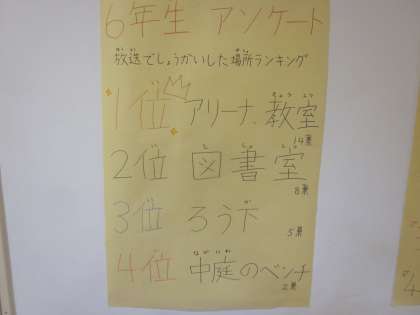 6年生 アンケート
放送でしょうかいした場所ランキング
1位 アリーナ、教室
14票
2位 図書室
8票
3位 ろう下
5票
4位 中庭のベンチ
2票